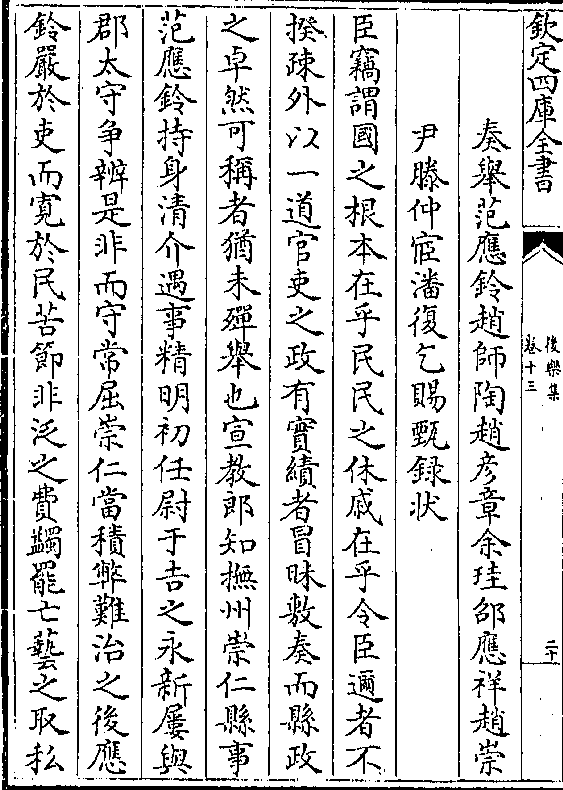 欽定四庫全書
後樂集
卷十三
二十
奏舉范應鈴趙師陶趙彦章余珪邵應祥趙崇
尹滕仲宧潘復乞賜甄録状
臣竊謂國之根本在乎民民之休戚在乎令臣邇者不
揆疎外以一道官吏之政有實績者冒昧敷奏而縣政
之卓然可稱者猶未殫舉也宣教郎知撫州崇仁縣事
范應鈴持身清介遇事精明初任尉于吉之永新屢與
郡太守争辨是非而守常屈崇仁當積弊難治之後應
鈴嚴於吏而寛於民苦節非泛之費蠲罷亡藝之取私